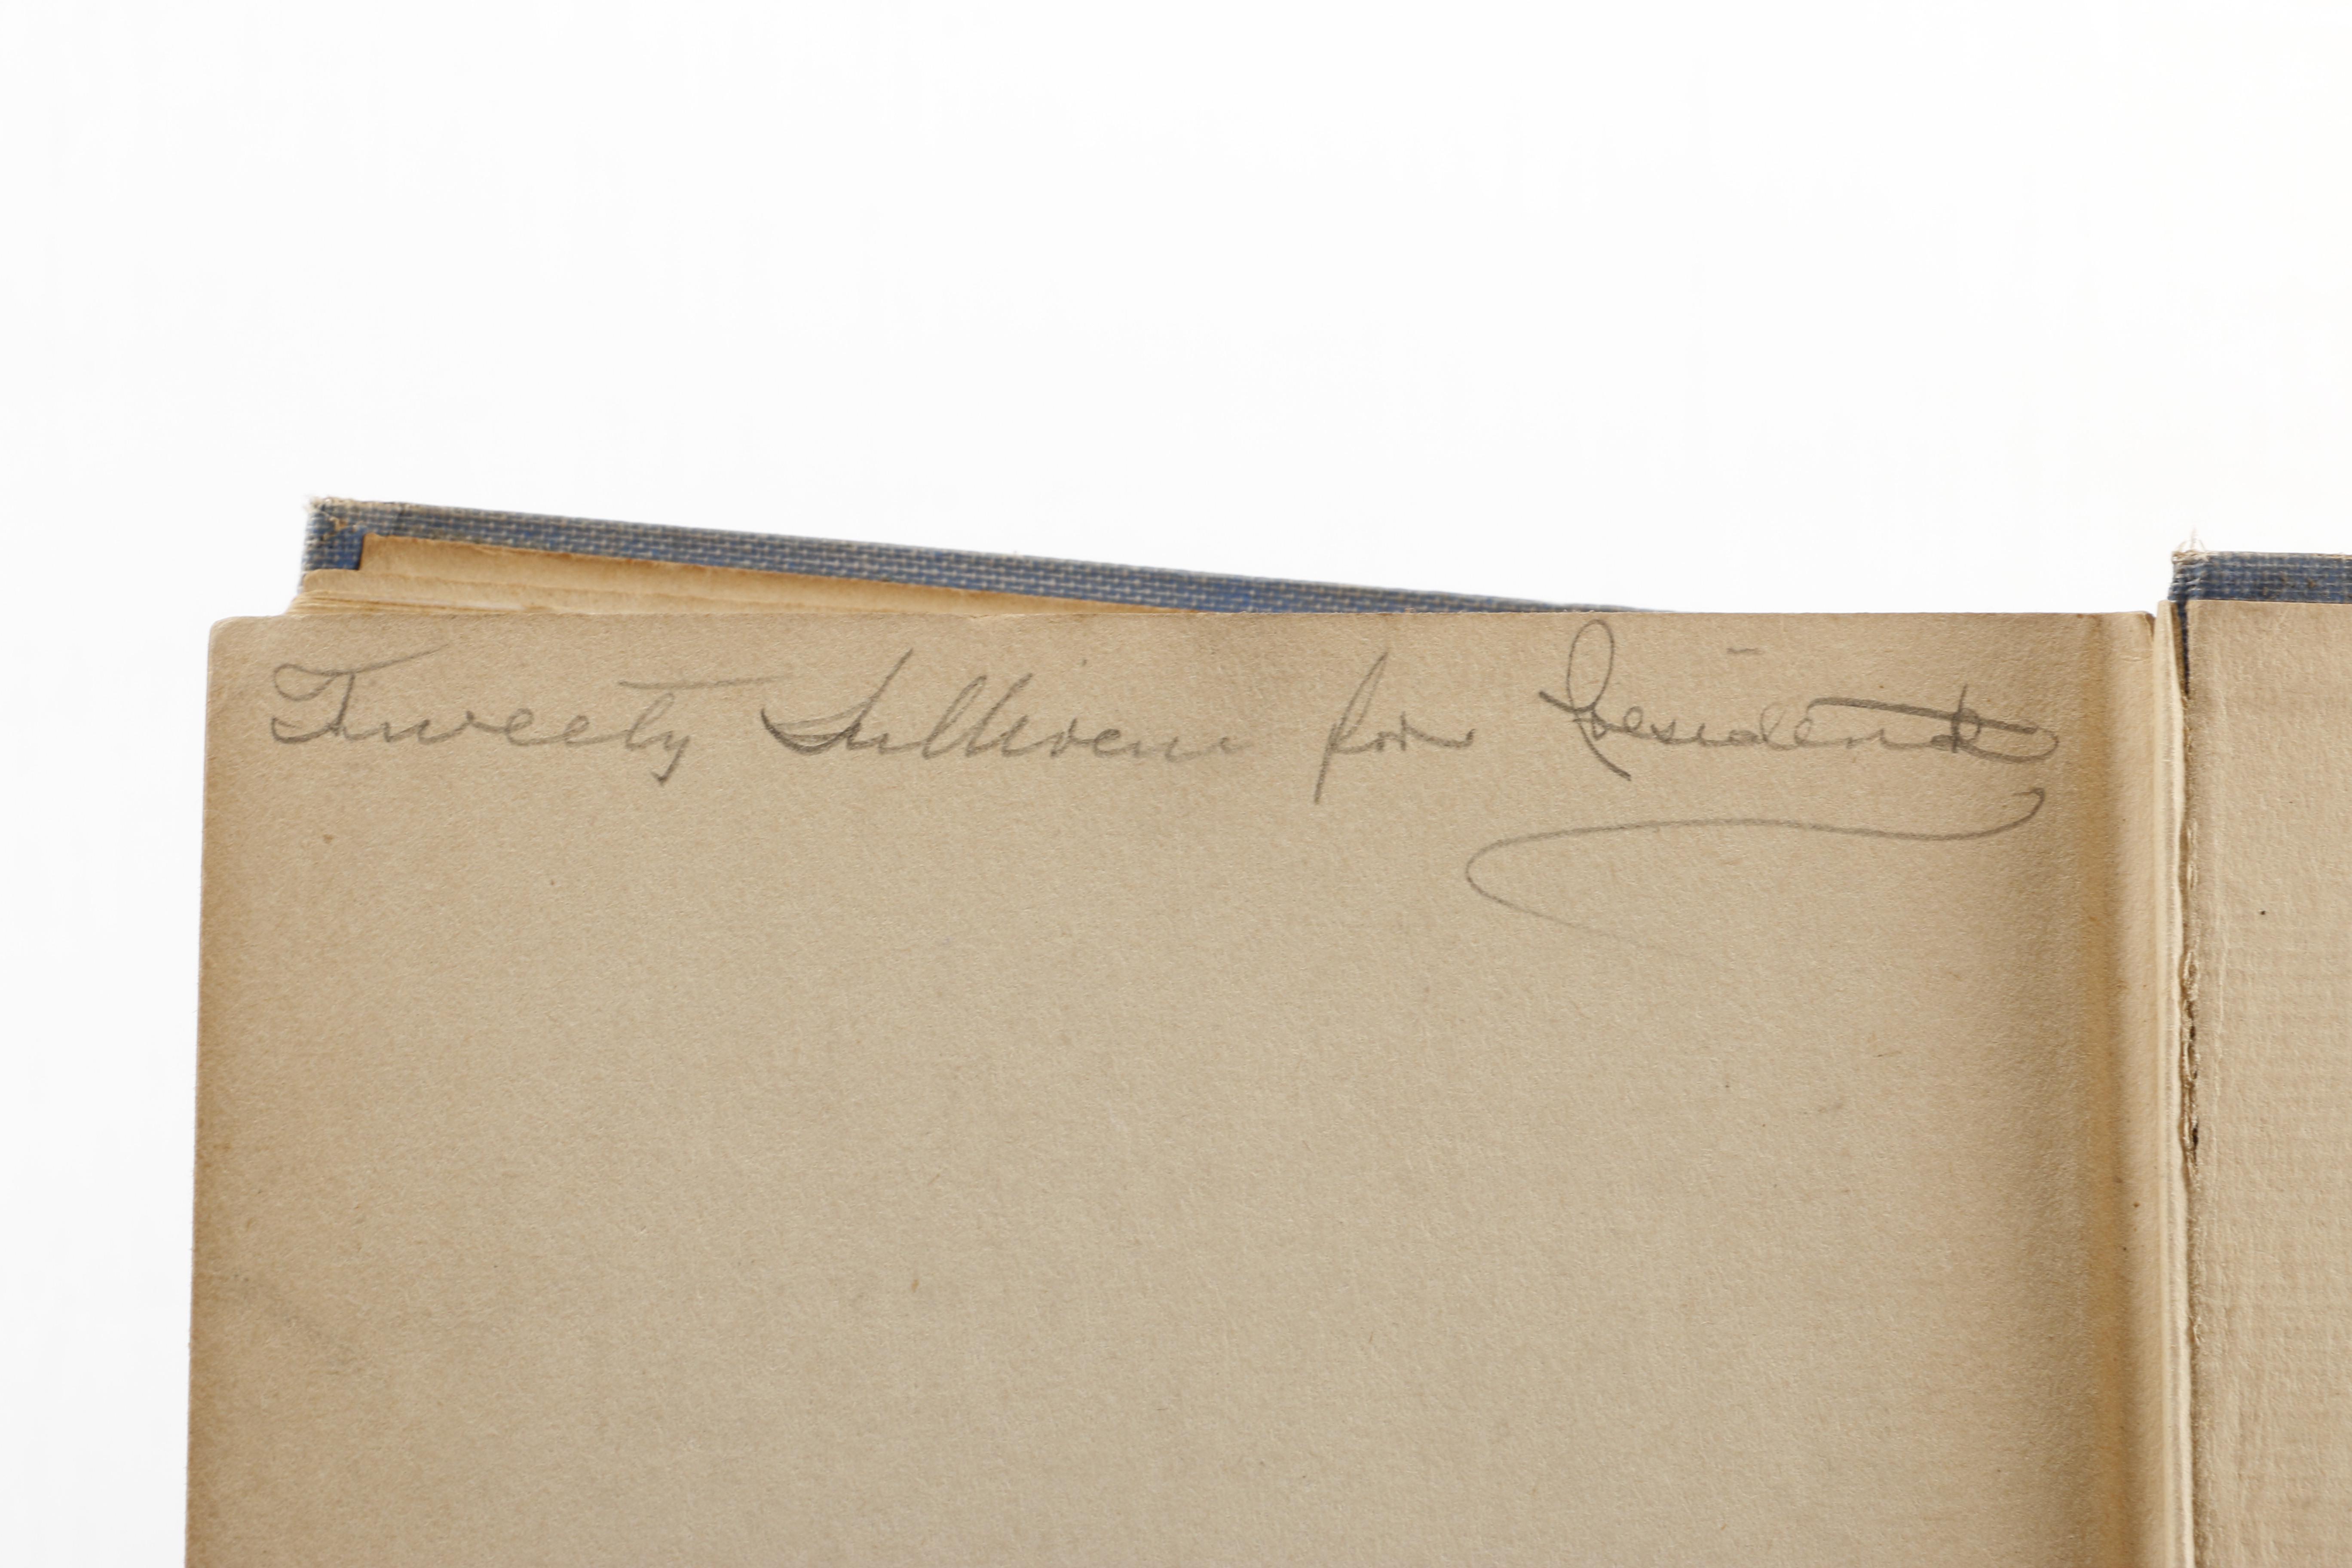 Tweety Sullivan for President